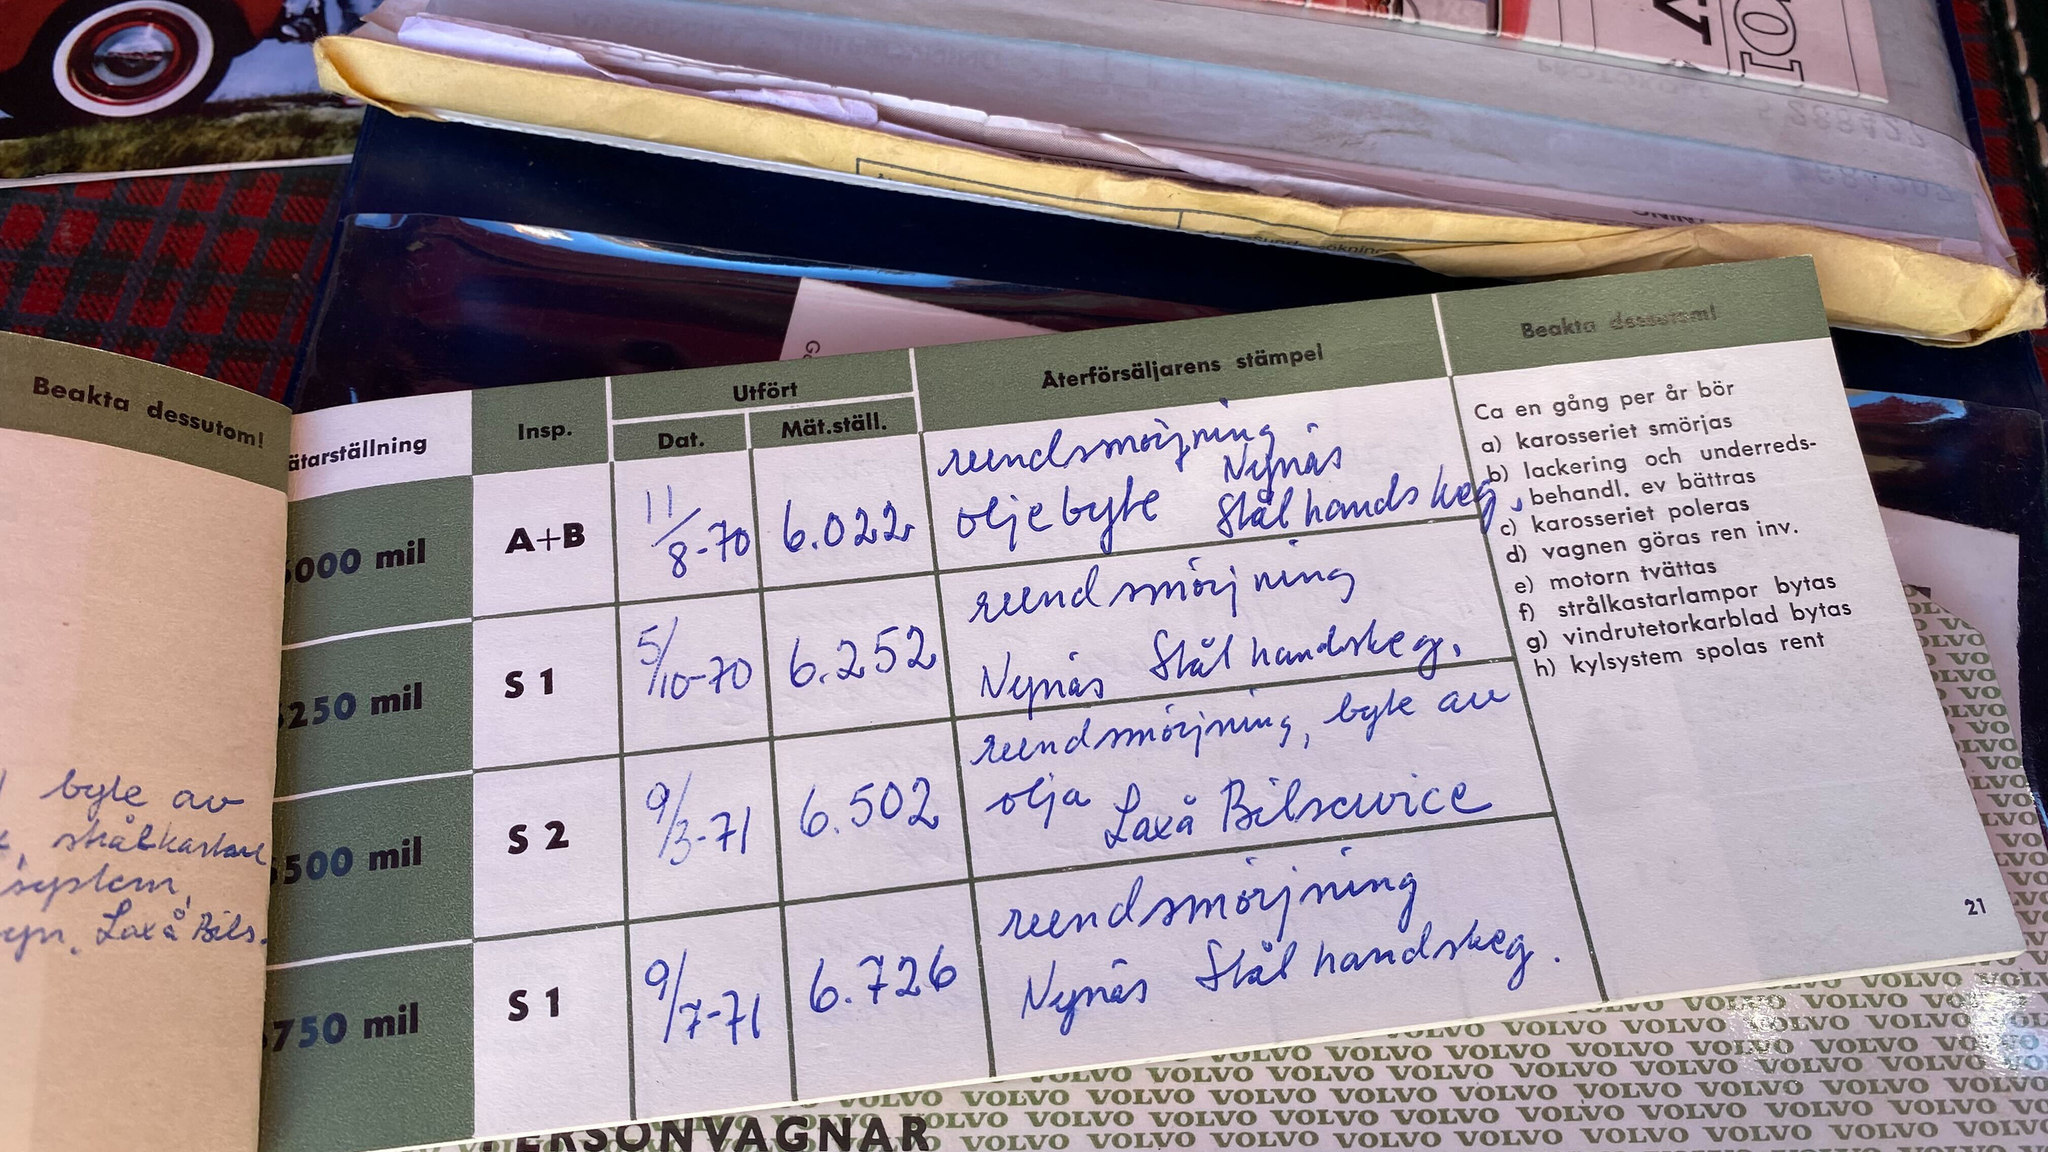 Beakta dessutom!
byte av
system,
Laxå Bils.
ätarställning
Insp.
Utfört
Dat.
Mät.ställ.
Återförsäljarens stämpel
Beakta dessutom!
000 mil
A+B
11/8-70
6.022
reendsmörjning
Nynäs
oljebyte Stålhandskeg,
250 mil
S 1
5/10-70
6.252
reendsmörjning
Nynäs Stålhandskeg.
500 mil
S 2
9/3-71
6.502
reendsmörjning, byte av
olja Laxå Bilservice
750 mil
S 1
9/7-71
6.726
reendsmörjning
Nynäs Stålhandskeg.
Ca en gång per år bör
a) karosseriet smörjas
b) lackering och underreds-
behandl. ev bättras
c) karosseriet poleras
d) vagnen göras ren inv.
e) motorn tvättas
f) strålkastarlampor bytas
g) vindrutetorkarblad bytas
h) kylsystem spolas rent
21
VOLVO VOLVO VOLVO VOLVO VOLVO
ERSONVAGNAR